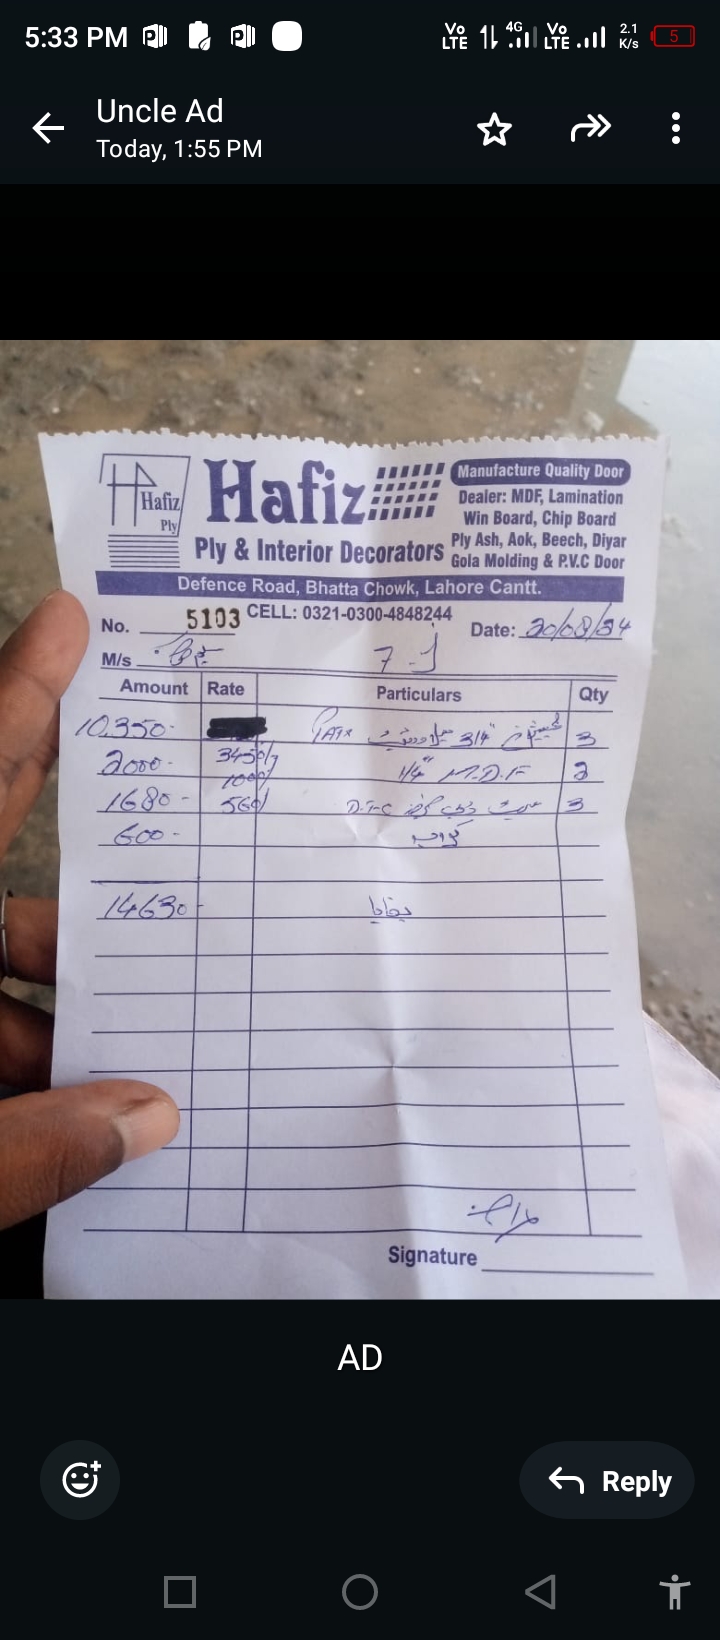 5:33 PM
Vo LTE 4G Vo LTE 2.1 K/s 5
Uncle Ad
Today, 1:55 PM
Hafiz Ply
Hafiz
Ply & Interior Decorators
Manufacture Quality Door
Dealer: MDF, Lamination
Win Board, Chip Board
Ply Ash, Aok, Beech, Diyar
Gola Molding & P.V.C Door
Defence Road, Bhatta Chowk, Lahore Cantt.
No. 5103 CELL: 0321-0300-4848244
Date: 20/08/24
M/s
Amount Rate Particulars Qty
10,350- 3450/ 3/4" 3
2000- 1000/ 1/4" M.D.F 2
1680- 560/ D.T.C 3
600- کرایہ
14630- بقایا
Signature
AD
Reply